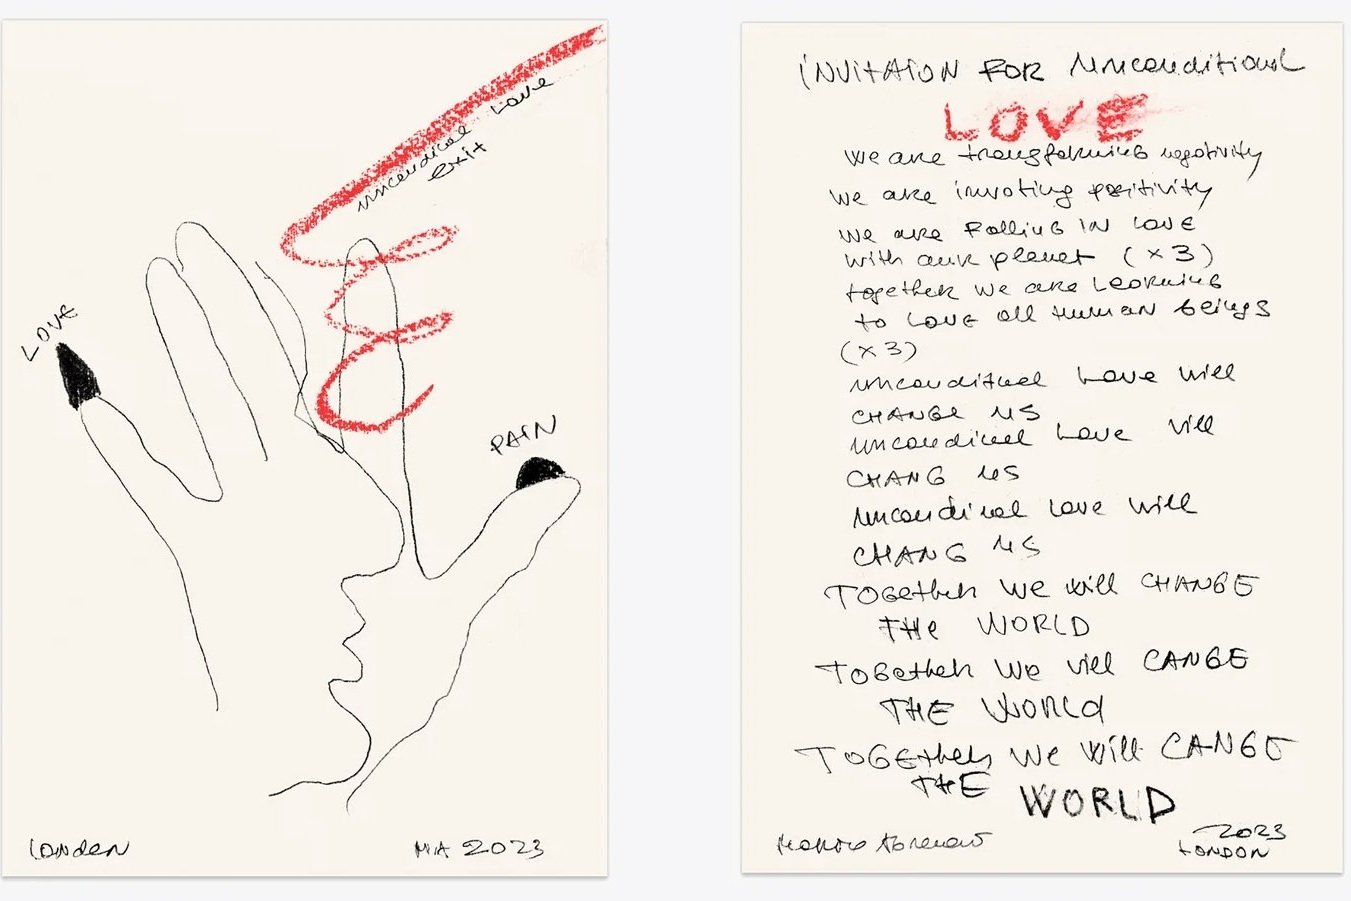 unconditional Love
Exit
LOVE
PAIN
LONDEN
MA 2023
iNVitAION FOR Unconditional
LOVE
We are transforming negativity
We are invoting positivity
We are Falling IN LOVE
With our planet (x3)
together we are Learning
to LOVE all Human beings
(x3)
unconditional Love will
CHANGE US
Love Will
CHANG US
Love Will
CHANG US
TOGether We will CHANGE
tHe WORLD
TOGether We Will CANGE
THE WORLd
TOGETher We Will CANGE
tHE WORLD
2023
LONDON